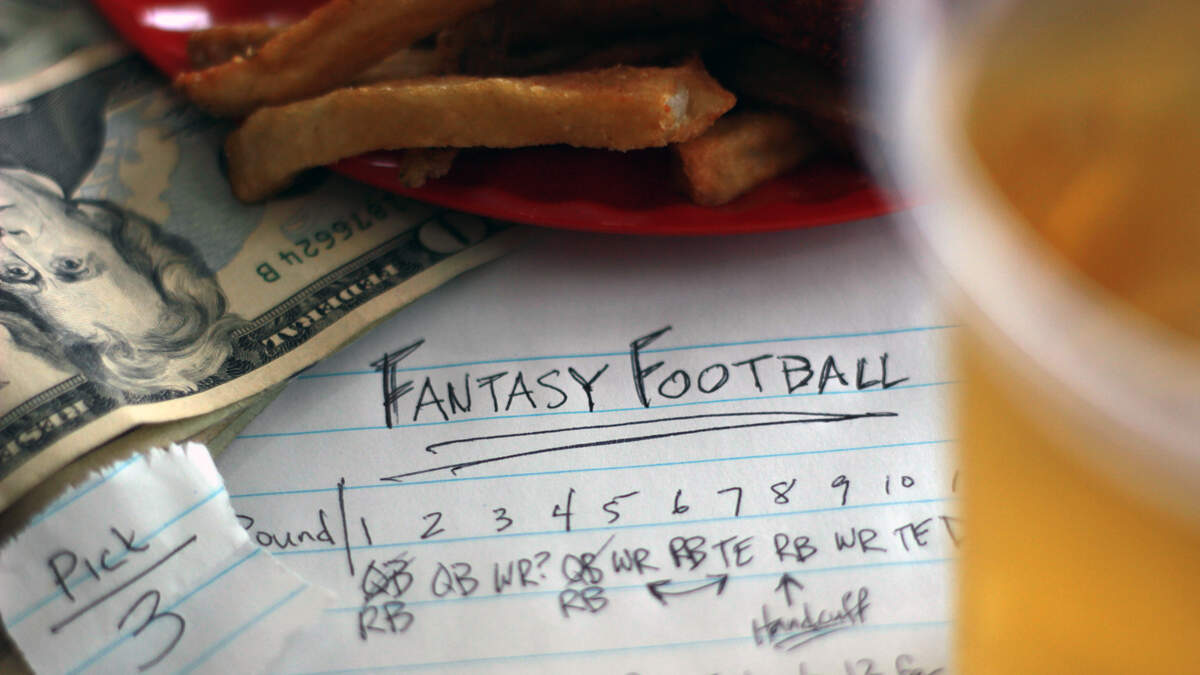 FANTASY FOOTBALL
Round 1 2 3 4 5 6 7 8 9 10
QB QB WR? QB WR RB TE RB WR TE D
RB RB
Handcuff
Pick
3
FEDERAL
876624 B